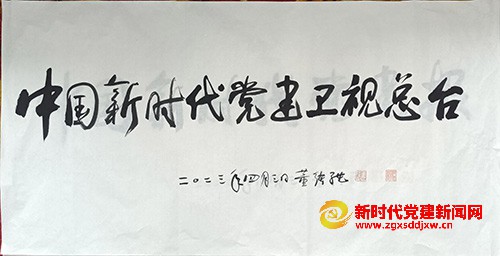 中国新时代党建卫视总台
二〇二三年四月三日 董
新时代党建新闻网
www.zgxsddjxw.cn